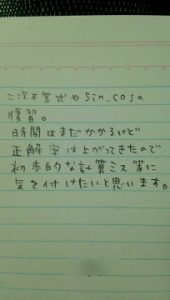 二次不等式やsin.cosの
復習。
時間はまだかかるけど
正解率は上がってきたので
初歩的な計算ミス等に
気を付けたいと思います。